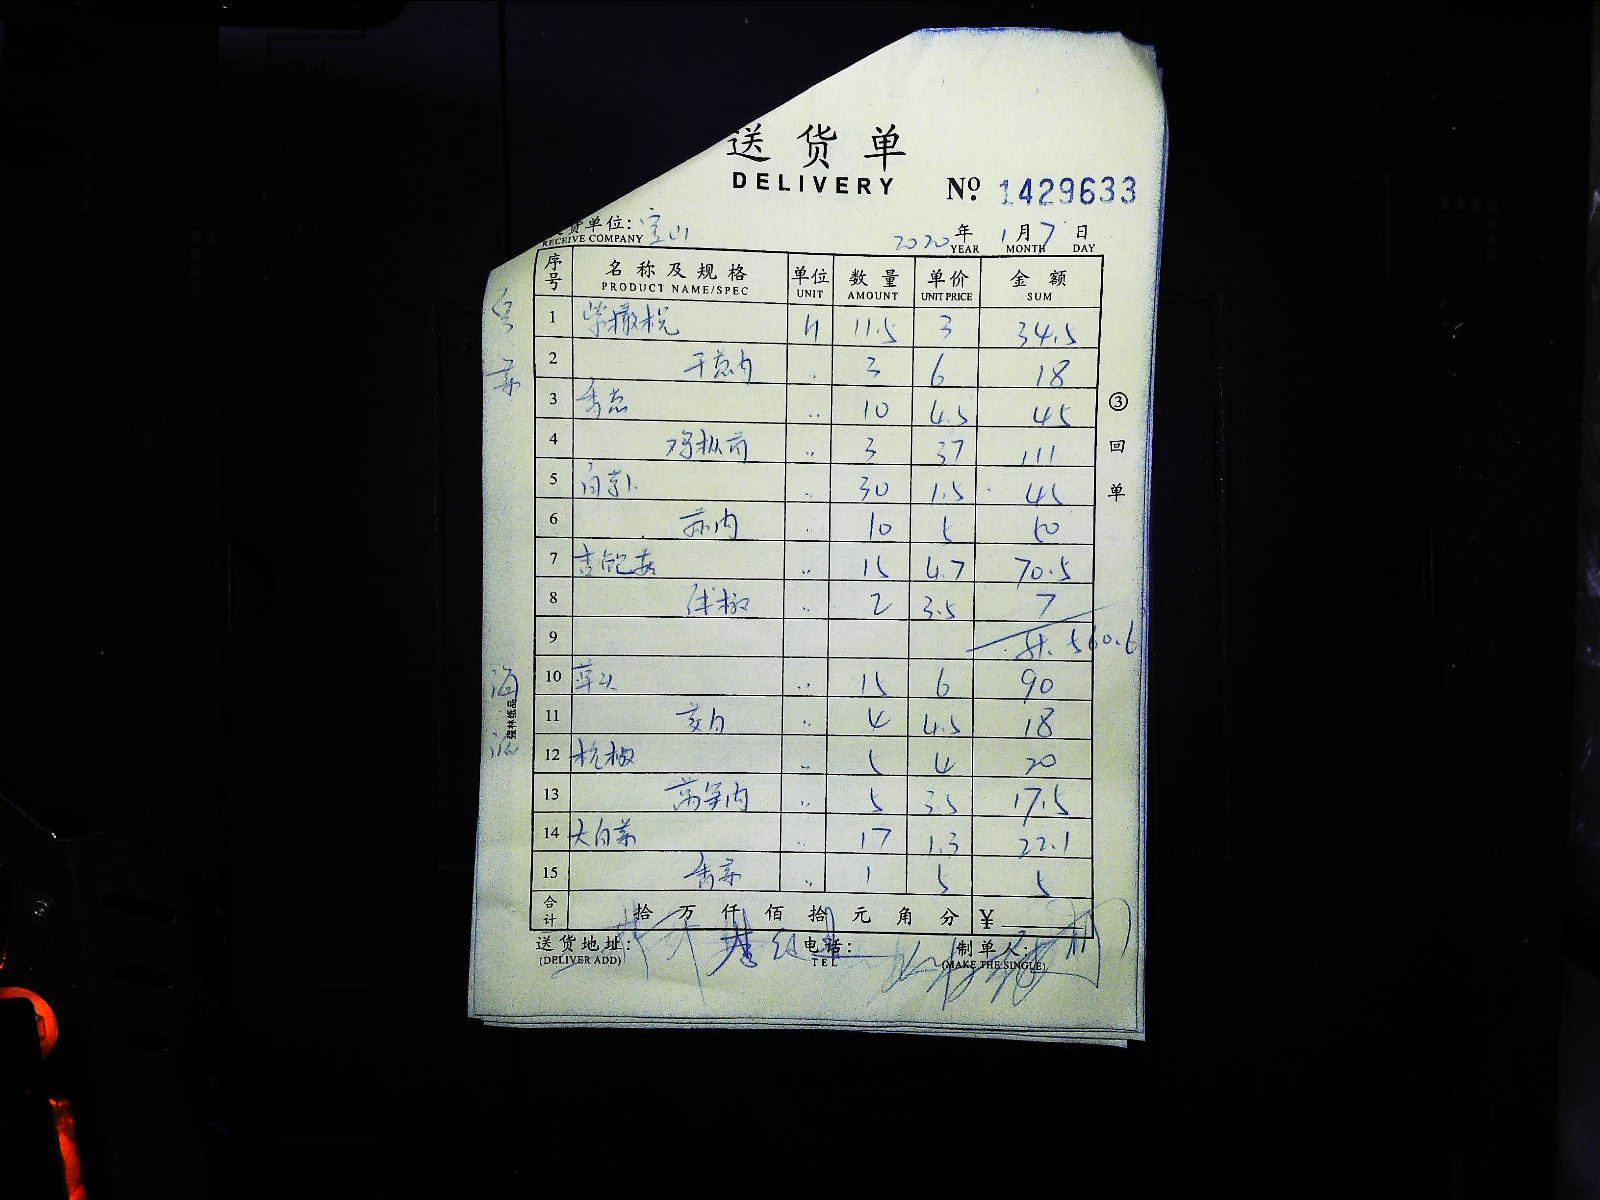 送货单
DELIVERY
No. 1429633
货单位: 宝山
RECEIVE COMPANY
2020 年 1 月 7 日
YEAR MONTH DAY
序号 名称及规格 单位 数量 单价 金额
PRODUCT NAME/SPEC UNIT AMOUNT UNIT PRICE SUM
1 11.5 3 34.5
2 干葱肉 .. 3 6 18
3 香葱 .. 10 4.5 45
4 鸡枞菌 .. 3 37 111
5 .. 30 1.5 45
6 蒜肉 .. 10 5 50
7 .. 15 4.7 70.5
8 .. 2 3.5 7
9 560.6
10 草头 .. 15 6 90
11 茭白 .. 4 4.5 18
12 杭椒 .. 5 4 20
13 莴笋肉 .. 5 3.5 17.5
14 大白菜 .. 17 1.3 22.1
15 香菜 .. 1 5 5
合计 拾 万 仟 佰 拾 元 角 分 ¥
送货地址: 电话: 制单人:
(DELIVER ADD) TEL (MAKE THE SINGLE)
③
回
单
强林纸品